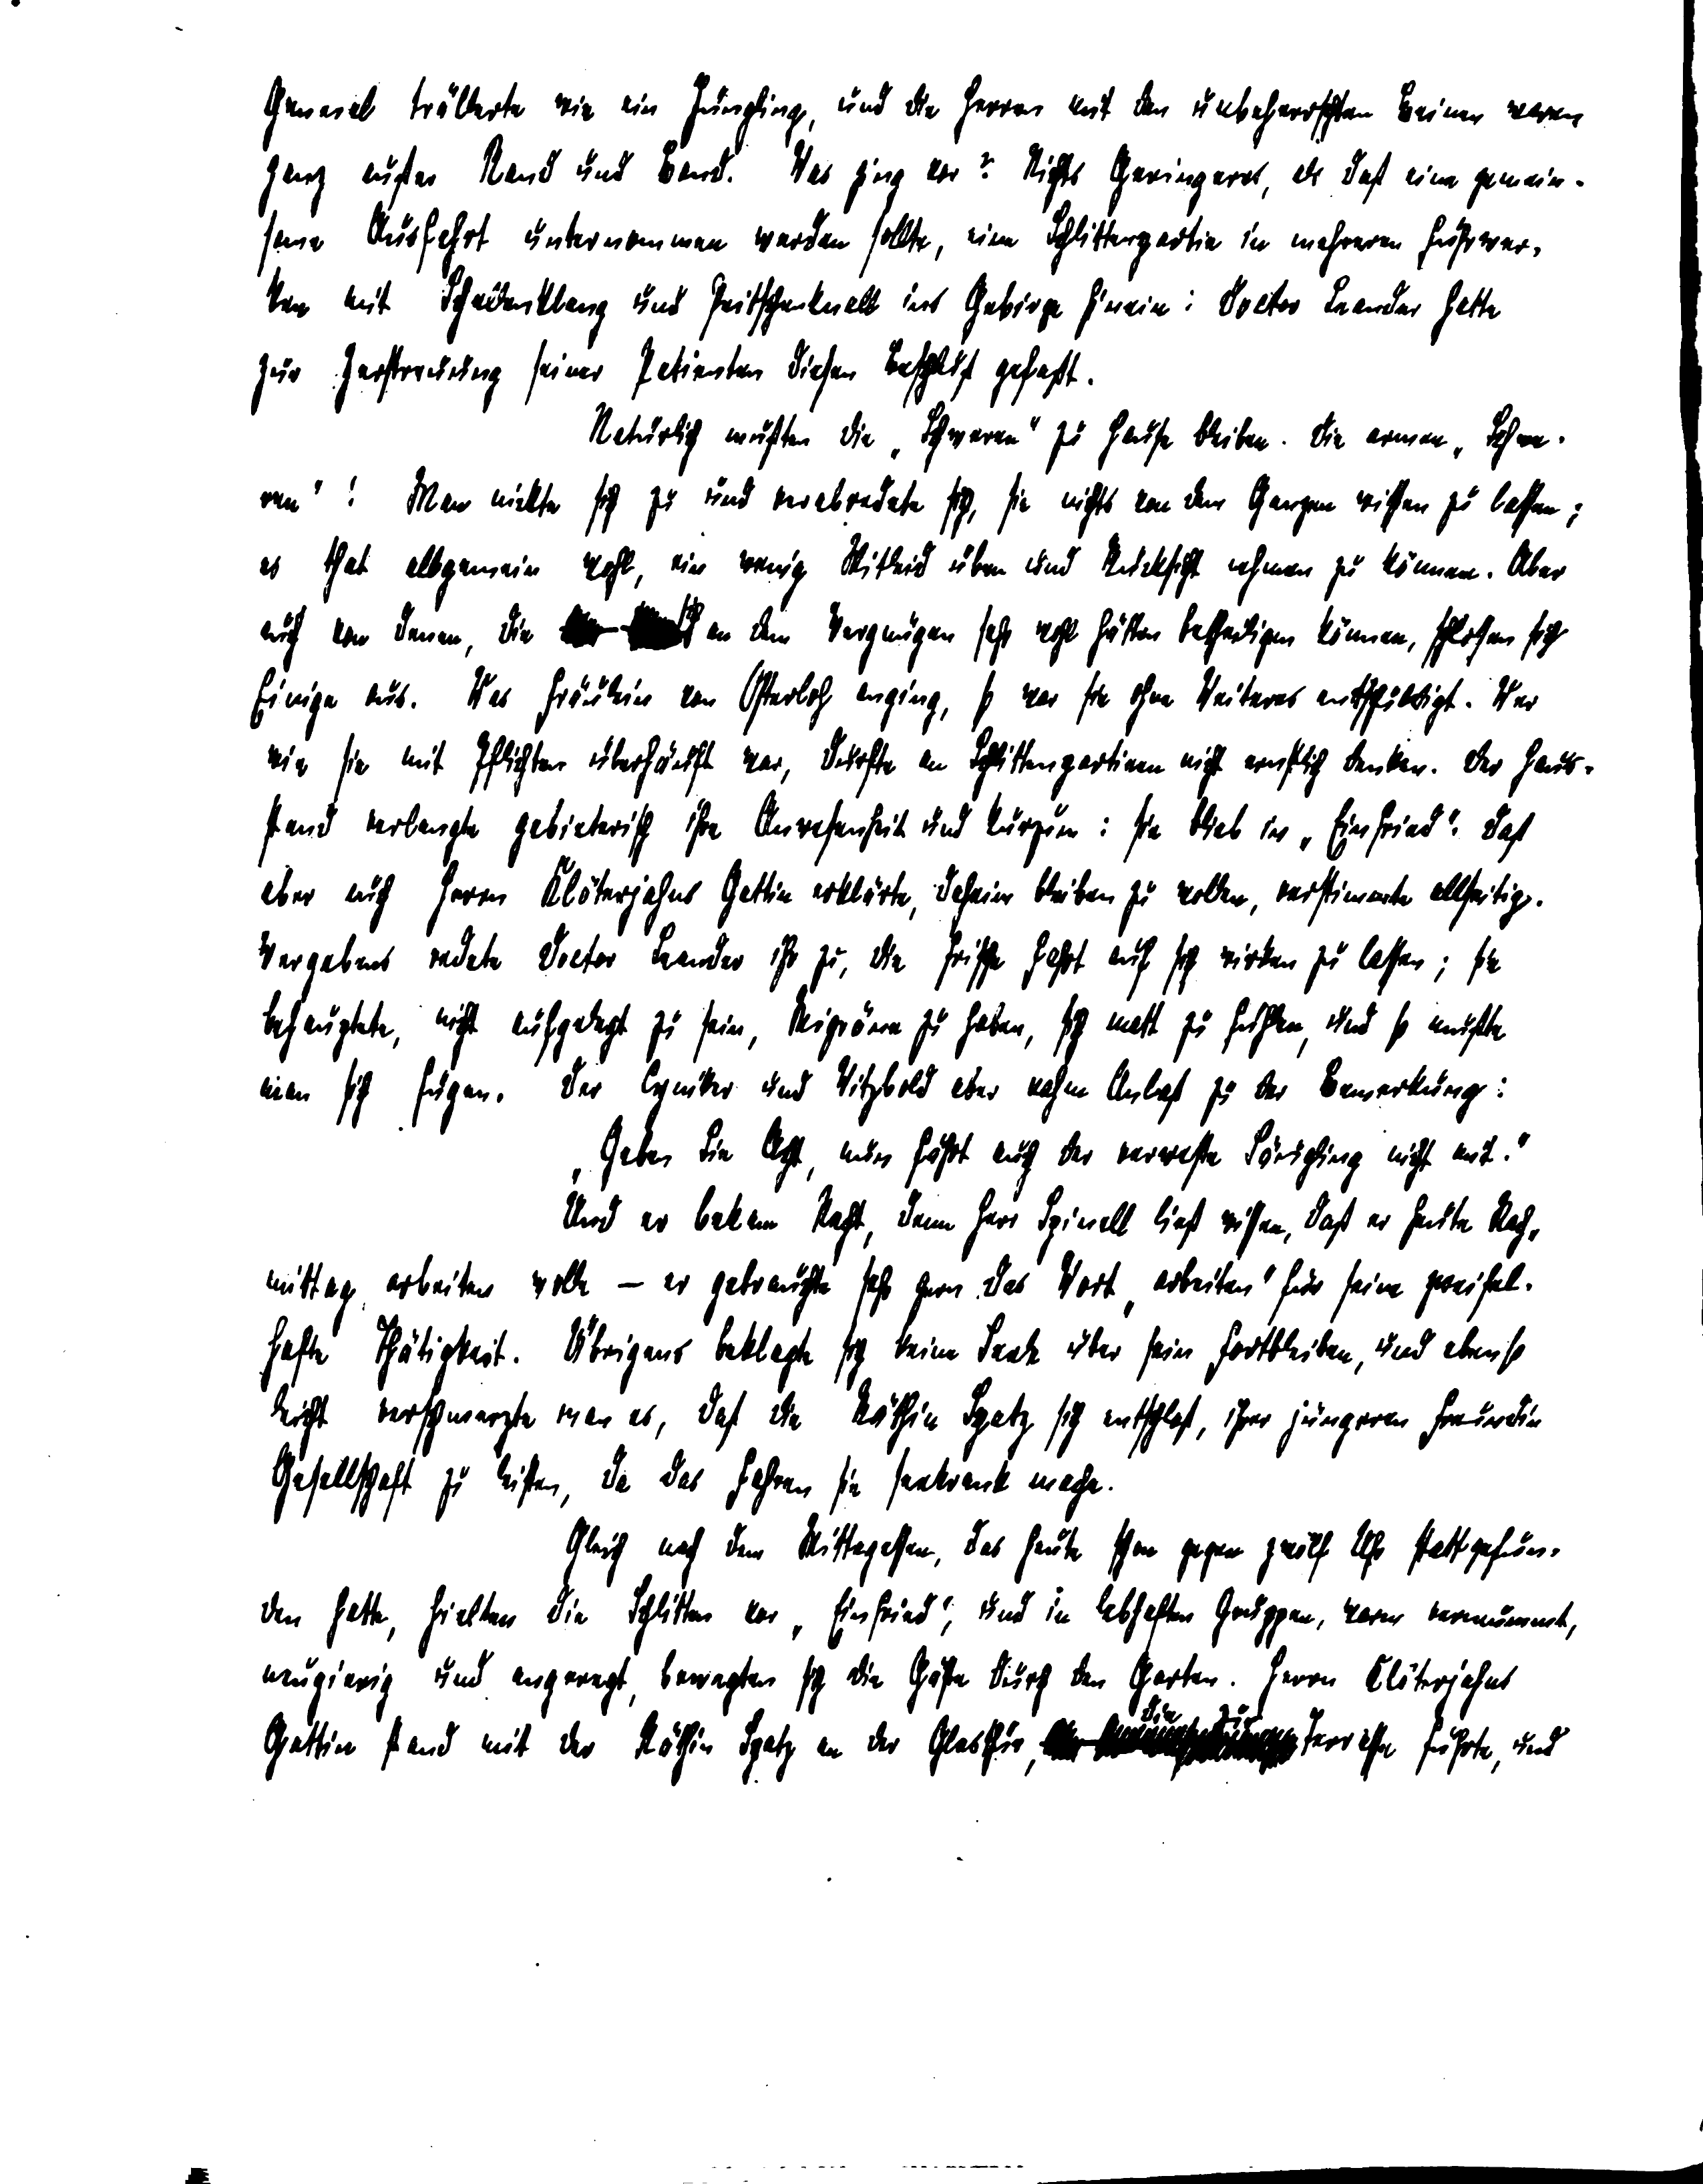 General trällerte wie ein Jüngling, und die Herren mit den unbeherrschten Beinen waren
ganz außer Rand und Band. Was ging vor? Nichts Geringeres, als daß eine gemein-
same Ausfahrt unternommen werden sollte, eine Schlittenpartie in mehreren Fuhrwer-
ken mit Schellenklang und Peitschenknall ins Gebirge hinein: Doctor Leander hatte
zur Zerstreuung seiner Patienten diesen Beschluß gefaßt.
Natürlich mußten die „Schweren“ zu Hause bleiben. Die armen „Schwe-
ren“! Man nickte sich zu und verabredete sich, sie nichts von dem Ganzen wissen zu lassen;
es that allgemein wohl, ein wenig Mitleid üben und Rücksicht nehmen zu können. Aber
auch von denen, die sich an dem Vergnügen sehr wohl hätten betheiligen können, schlossen sich
Einige aus. Was Fräulein von Osterloh anging, so war sie ohne Weiteres entschuldigt. Wer
wie sie mit Pflichten überhäuft war, durfte an Schlittenpartieen nicht ernstlich denken. Der Haus-
stand verlangte gebieterisch ihre Anwesenheit und kurzum: sie blieb in „Einfried“. Daß
aber auch Herrn Klöterjahns Gattin erklärte, daheim bleiben zu wollen, verstimmte allseitig.
Vergebens redete Doctor Leander ihr zu, die frische Fahrt auf sich wirken zu lassen; sie
behauptete, nicht aufgelegt zu sein, Migräne zu haben, sich matt zu fühlen, und so mußte
man sich fügen. Der Cyniker und Witzbold aber nahm Anlaß zu der Bemerkung:
„Geben Sie Acht, nun fährt auch der verweste Säugling nicht mit.“
Und er bekam Recht, denn Herr Spinell ließ wissen, daß er heute Nach-
mittag arbeiten wolle — er gebrauchte sehr gern das Wort „arbeiten“ für seine zweifel-
hafte Thätigkeit. Übrigens beklagte sich keine Seele über sein Fortbleiben, und ebenso
leicht verschmerzte man es, daß die Räthin Spatz sich entschloß, ihrer jüngeren Freundin
Gesellschaft zu leisten, da das Fahren sie seekrank mache.
Gleich nach dem Mittagessen, das heute schon gegen zwölf Uhr stattgefun-
den hatte, hielten die Schlitten vor „Einfried“, und in lebhaften Gruppen, warm vermummt,
neugierig und angeregt, bewegten sich die Gäste durch den Garten. Herrn Klöterjahns
Gattin stand mit der Räthin Spatz an der Glasthür, die zur Terrasse führte, und